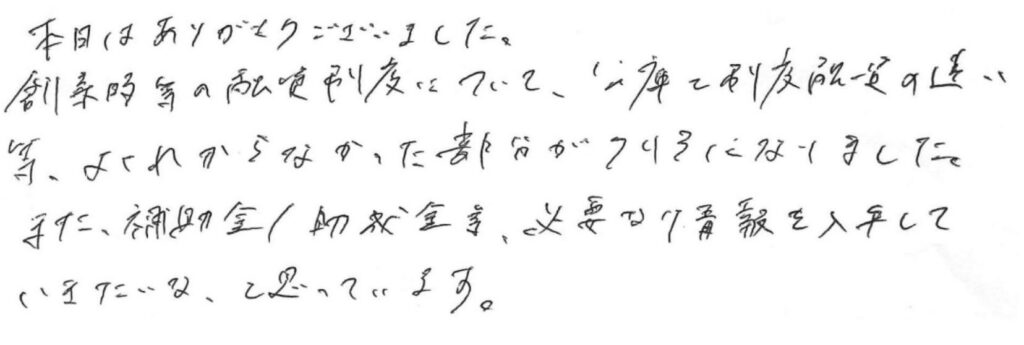 本日はありがとうございました。
創業時等の融資制度について、公庫と制度融資の違い
等、よくわからなかった部分がクリアになりました。
また、補助金/助成金等、必要な情報を入手して
いきたいな、と思っています。